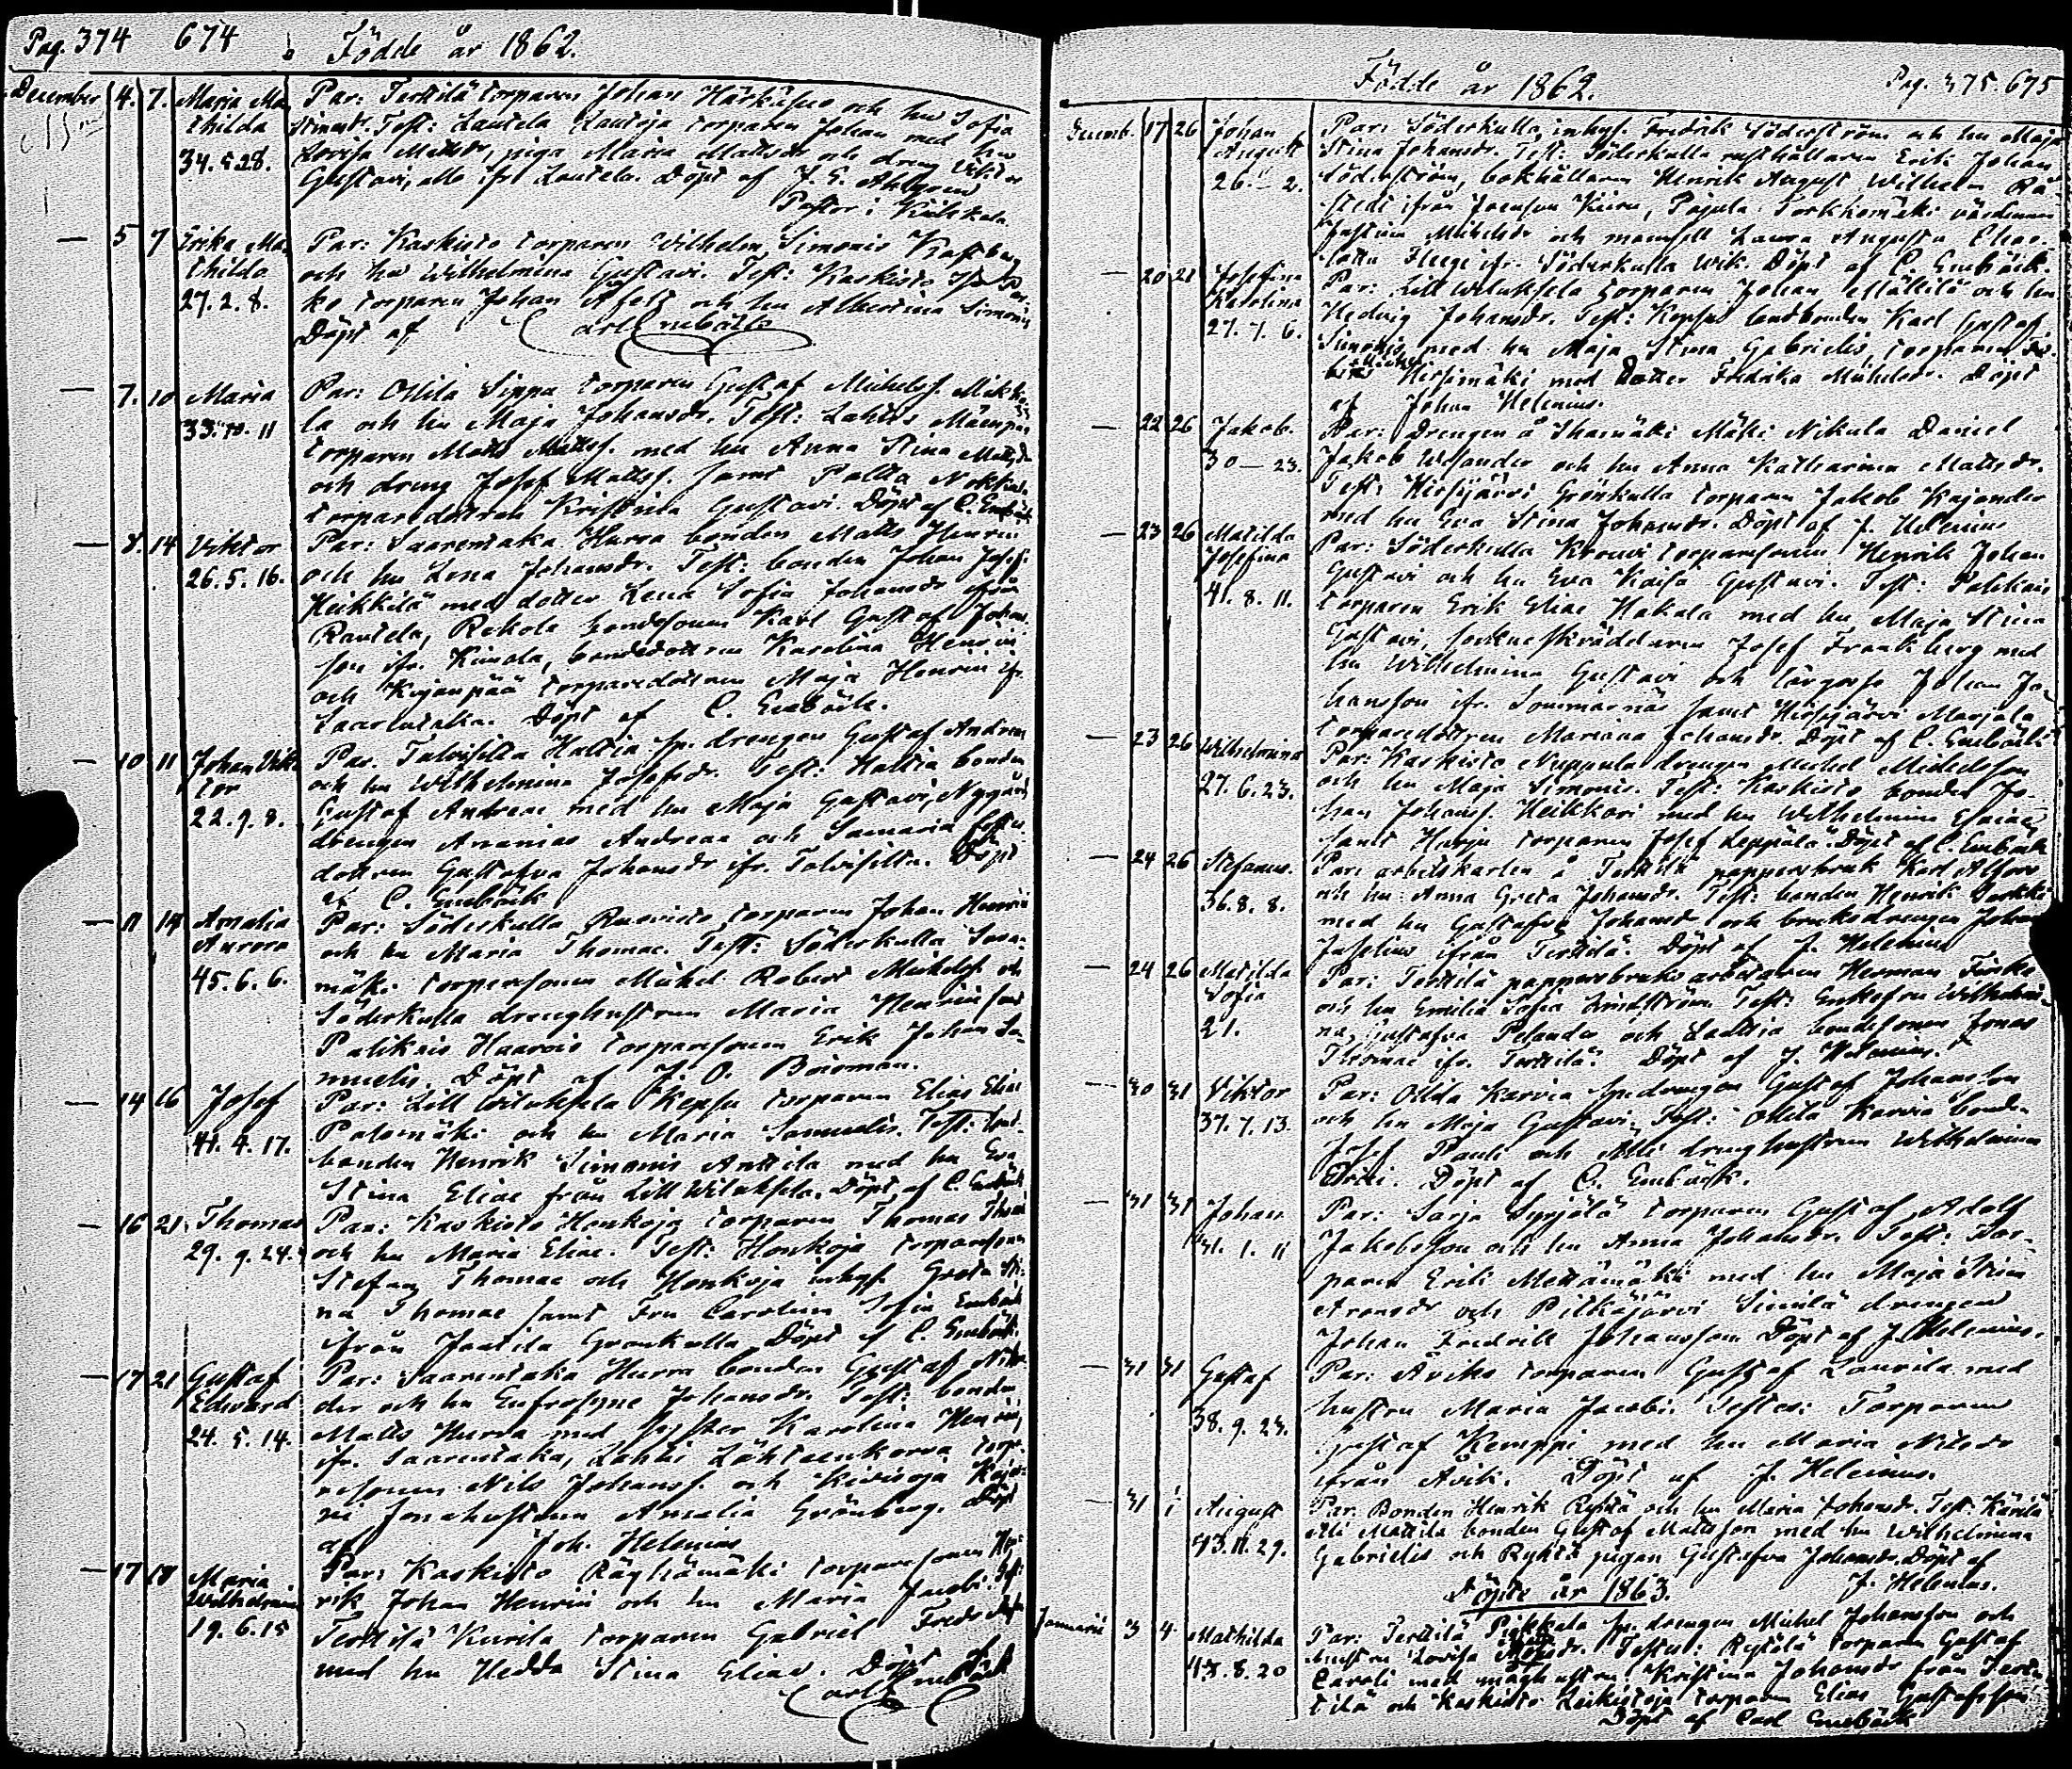 Pag. 374 674 Födde år 1862.
December 4. 7. Maria Ma Par: Terttilä torparen Johan Härkäpää och hu Sofia
thilda Stinasdr. Test: Lautela Lautoja torparen Johan med hu
34. 5. 28. Lovisa Mattsdr, piga Maria Mattsdr och dreng Viktor
Gustavi, alla ifr Lautela. Döpt af J. E. Ahlgren
Pastor i Kiikala
— 5 7 Erika Ma Par: Kaskisto torparen Wilhelm Simonis Kraftberg
thilda och hu Wilhelmina Gustavi. Test: Kaskisto
27. 2. 8. torparen Johan Afelt och hu Albertina Simonis
Döpt af Carl Enebäck
— 7. 10 Maria Par: Ollila Sippa torparen Gustaf Michelss. Mikko
33. 10. 11 la och hu Maja Johansdr. Test: Lahtis Mäenpää
torparen Matts Mattss. med hu Anna Stina Mattsdr
och dreng Josef Mattss. samt Palta Nokka
torparedottren Kristina Gustavi. Döpt af C. Enebäck
— 8. 14 Viktor Par: Saarentaka Hurra bonden Matts Henrici
26. 5. 16. och hu Lena Johansdr. Test: bonden Johan Josefs.
Heikkilä med dotter Lena Sofia Johansdr ifrån
Rautela, Rekola bondesonen Karl Gustaf Johan
son ifr. Kiimala, bondedottren Karolina Henrici
och Kojanpää torparedottren Maja Henrici ifr
Saarentaka. Döpt af C. Enebäck.
— 10 11 Johan Vik Par. Talvisilta Haltia sp. drengen Gustaf Andreae
tor och hu Wilhelmina Josefsdr. Test: Haltia bonden
22. 9. 8. Gustaf Andreae med hu Maja Gustavi, Nygård
drengen Ananias Andreae och Samaria
dottren Gustafva Johansdr ifr. Talvisilta. Döpt
af C. Enebäck
— 11 14 Amalia Par: Söderkulla Ruovisto torparen Johan Henrici
Aurora och hu Maria Thomae. Test: Söderkulla
45. 6. 6. mäki torparesonen Michel Robert Michelss. och
Söderkulla drenghustrun Maria Henrici samt
Palikais Haarvio torparesonen Erik Johan Sa-
muelis. Döpt af J. O. Boisman.
— 14 16 Josef Par: Lill Wiluksela Keppsu torparen Elias Eliae
41. 4. 17. Palomäki och hu Maria Samuelis. Test: land-
bonden Henrik Simonis Anttila med hu Eva
Stina Eliae från Lill Wiluksela. Döpt af C. Enebäck
— 16 21 Thomas Par: Kaskisto Honkoja torparen Thomas Thomae
29. 9. 24. och hu Maria Eliae. Test: Honkoja torparesonen
Stefan Thomae och Honkoja inhys. Greta Sti-
na Thomae samt Fru Carolina Sofia Enebäck
ifrån Jaatila Gronkulla Döpt af C. Enebäck.
— 17 21 Gustaf Par: Saarentaka Hurra bonden Gustaf
Edward der och hu Eufrosyne Johansdr. Test: bonden
24. 5. 14. Matts Hurra med syster Karolina Henrici,
ifr. Saarentaka, Lahti Lähteenkorva torpa-
resonen Nils Johanss. och Kivisoja
hustrun Amalia Grönberg. Döpt
af Joh. Helenius
— 17 18 Maria Par: Kaskisto Räyhämäki torparesonen Hen-
Wilhelmina rik Johan Henrici och hu Maria Jacobi. Test:
19. 6. 15 Terttilä Kurila torparen Gabriel
med hu Hedda Stina Eliae. Döpt af
Carl Enebäck
Födde år 1862. Pag. 375. 675
Decemb. 17 26 Johan Par: Söderkulla, inhys. Fredrik Söderström och hu Maja
August Stina Johansdr. Test: Söderkulla rusthållaren Erik Johan
26. — 2. Söderström, bokhållaren Henrik August Wilhelm
stedt ifrån Kiiru, Pajula Torkkomäki värdinnan
Justina Michelsdr och mamsell Laura Augusta Char-
lotta Fleege ifr. Söderkulla Wik. Döpt af C. Enebäck.
— 20 21 Josefina Par: Lill Wiluksela torparen Johan Mattila och hu
Karolina Hedvig Johansdr. Test: Keppsu landbonden Karl Gustaf
27. 7. 6. Simonis med hu Maja Stina Gabrielis, torparen
Hirsimäki med dotter Fredrika Michelsdr. Döpt
af Johan Helenius.
— 22 26 Jakob. Par: Drengen å Ihamäki Mäki Nikula Daniel
30 — 23. Jakob Wesander och hu Anna Katharina Mattsdr.
Test: Hirsijärvi Grönkulla torparen Jakob Kajander
med hu Eva Stina Johansdr. Döpt af J. Helenius
— 23 26 Matilda Par: Söderkulla Krouvi torparesonen Henrik Johan
Josefina Gustavi och hu Eva Kaisa Gustavi. Test: Palikais
41. 8. 11. torparen Erik Eliae Hakala med hu Maja Stina
Gustavi, sockneskräddaren Josef Frankberg med
hu Wilhelmina Gustavi och lärgosse Johan Jo-
hansson ifr. Sommarnäs samt Hirsijärvi Marjala
torparedottren Mariana Johansdr. Döpt af C. Enebäck
— 23 26 Wilhelmina Par: Kaskisto Nuppula drengen Michel Michelsson
27. 6. 23. och hu Maja Simonis. Test: Kaskisto bonden Jo-
han Johanss. Heikkari med hu Wilhelmina Esaiae
samt Harju torparen Josef Leppälä. Döpt af C. Enebäck
— 24 26 Stefanus. Par: arbetskarlen å Terttilä pappersbruk Karl Alfors
36. 8. 8. och hu Anna Greta Johansdr. Test: bonden Henrik
med hu Gustafva Johansdr och bruksdrengen Johan
Juselius ifrån Terttilä. Döpt af J. Helenius
— 24 26 Matilda Par: Terttilä pappersbruks arbetaren Herman
Sofia och hu Emilia Sofia Lindström. Test: Enkefru Wilhelmi-
21. na Gustafva Pelander och Lauttia bondesonen Jonas
Thomae ifr. Terttilä. Döpt af J. Helenius.
— 30 31 Viktor Par: Ollila Karvia sp. drengen Gustaf Johansson
37. 7. 13. och hu Maja Gustavi. Test: Ollila Karvia bonden
Josef Pauli och Alli drenghustrun Wilhelmina
Erici. Döpt af C. Enebäck.
— 31 31 Johan Par: Sarja Syrjälä torparen Gustaf Adolf
31. 1. 11 Jakobsson och hu Anna Johansdr. Test: Tor-
paren Erik Mettämäki med hu Maja Stina
Aronsdr och Pitkäjärvi Simila drengen
Johan Fredrik Johansson. Döpt af J. Helenius.
— 31 31 Gustaf Par: Aviks torparen Gustaf Laurila med
38. 9. 23. hustru Maria Jacobi. Testes: Torparen
Gustaf Kemppi med hu Maria Nilsdr
ifrån Åvik. Döpt af J. Helenius.
— 31 1 August Par. Bonden Henrik Rytkö och hu Maria Johansdr. Test. Kärilä
43. 11. 29. Ali Mattila bonden Gustaf Mattsson med hu Wilhelmina
Gabrielis och Rytkö pigan Gustafva Johansdr. Döpt af
J. Helenius.
Döpte år 1863.
Januarii 3 4 Mathilda Par: Terttilä Pikkala sp. drengen Michel Johansson och
43. 8. 20 hustru Lovisa Test: Rytkölä torparen Gustaf
Caroli med mågh ustru Kristina Johansdr från Tert-
tilä och Kaskisto Keikistoja torparen Elias Gustafsson
Döpt af Carl Enebäck